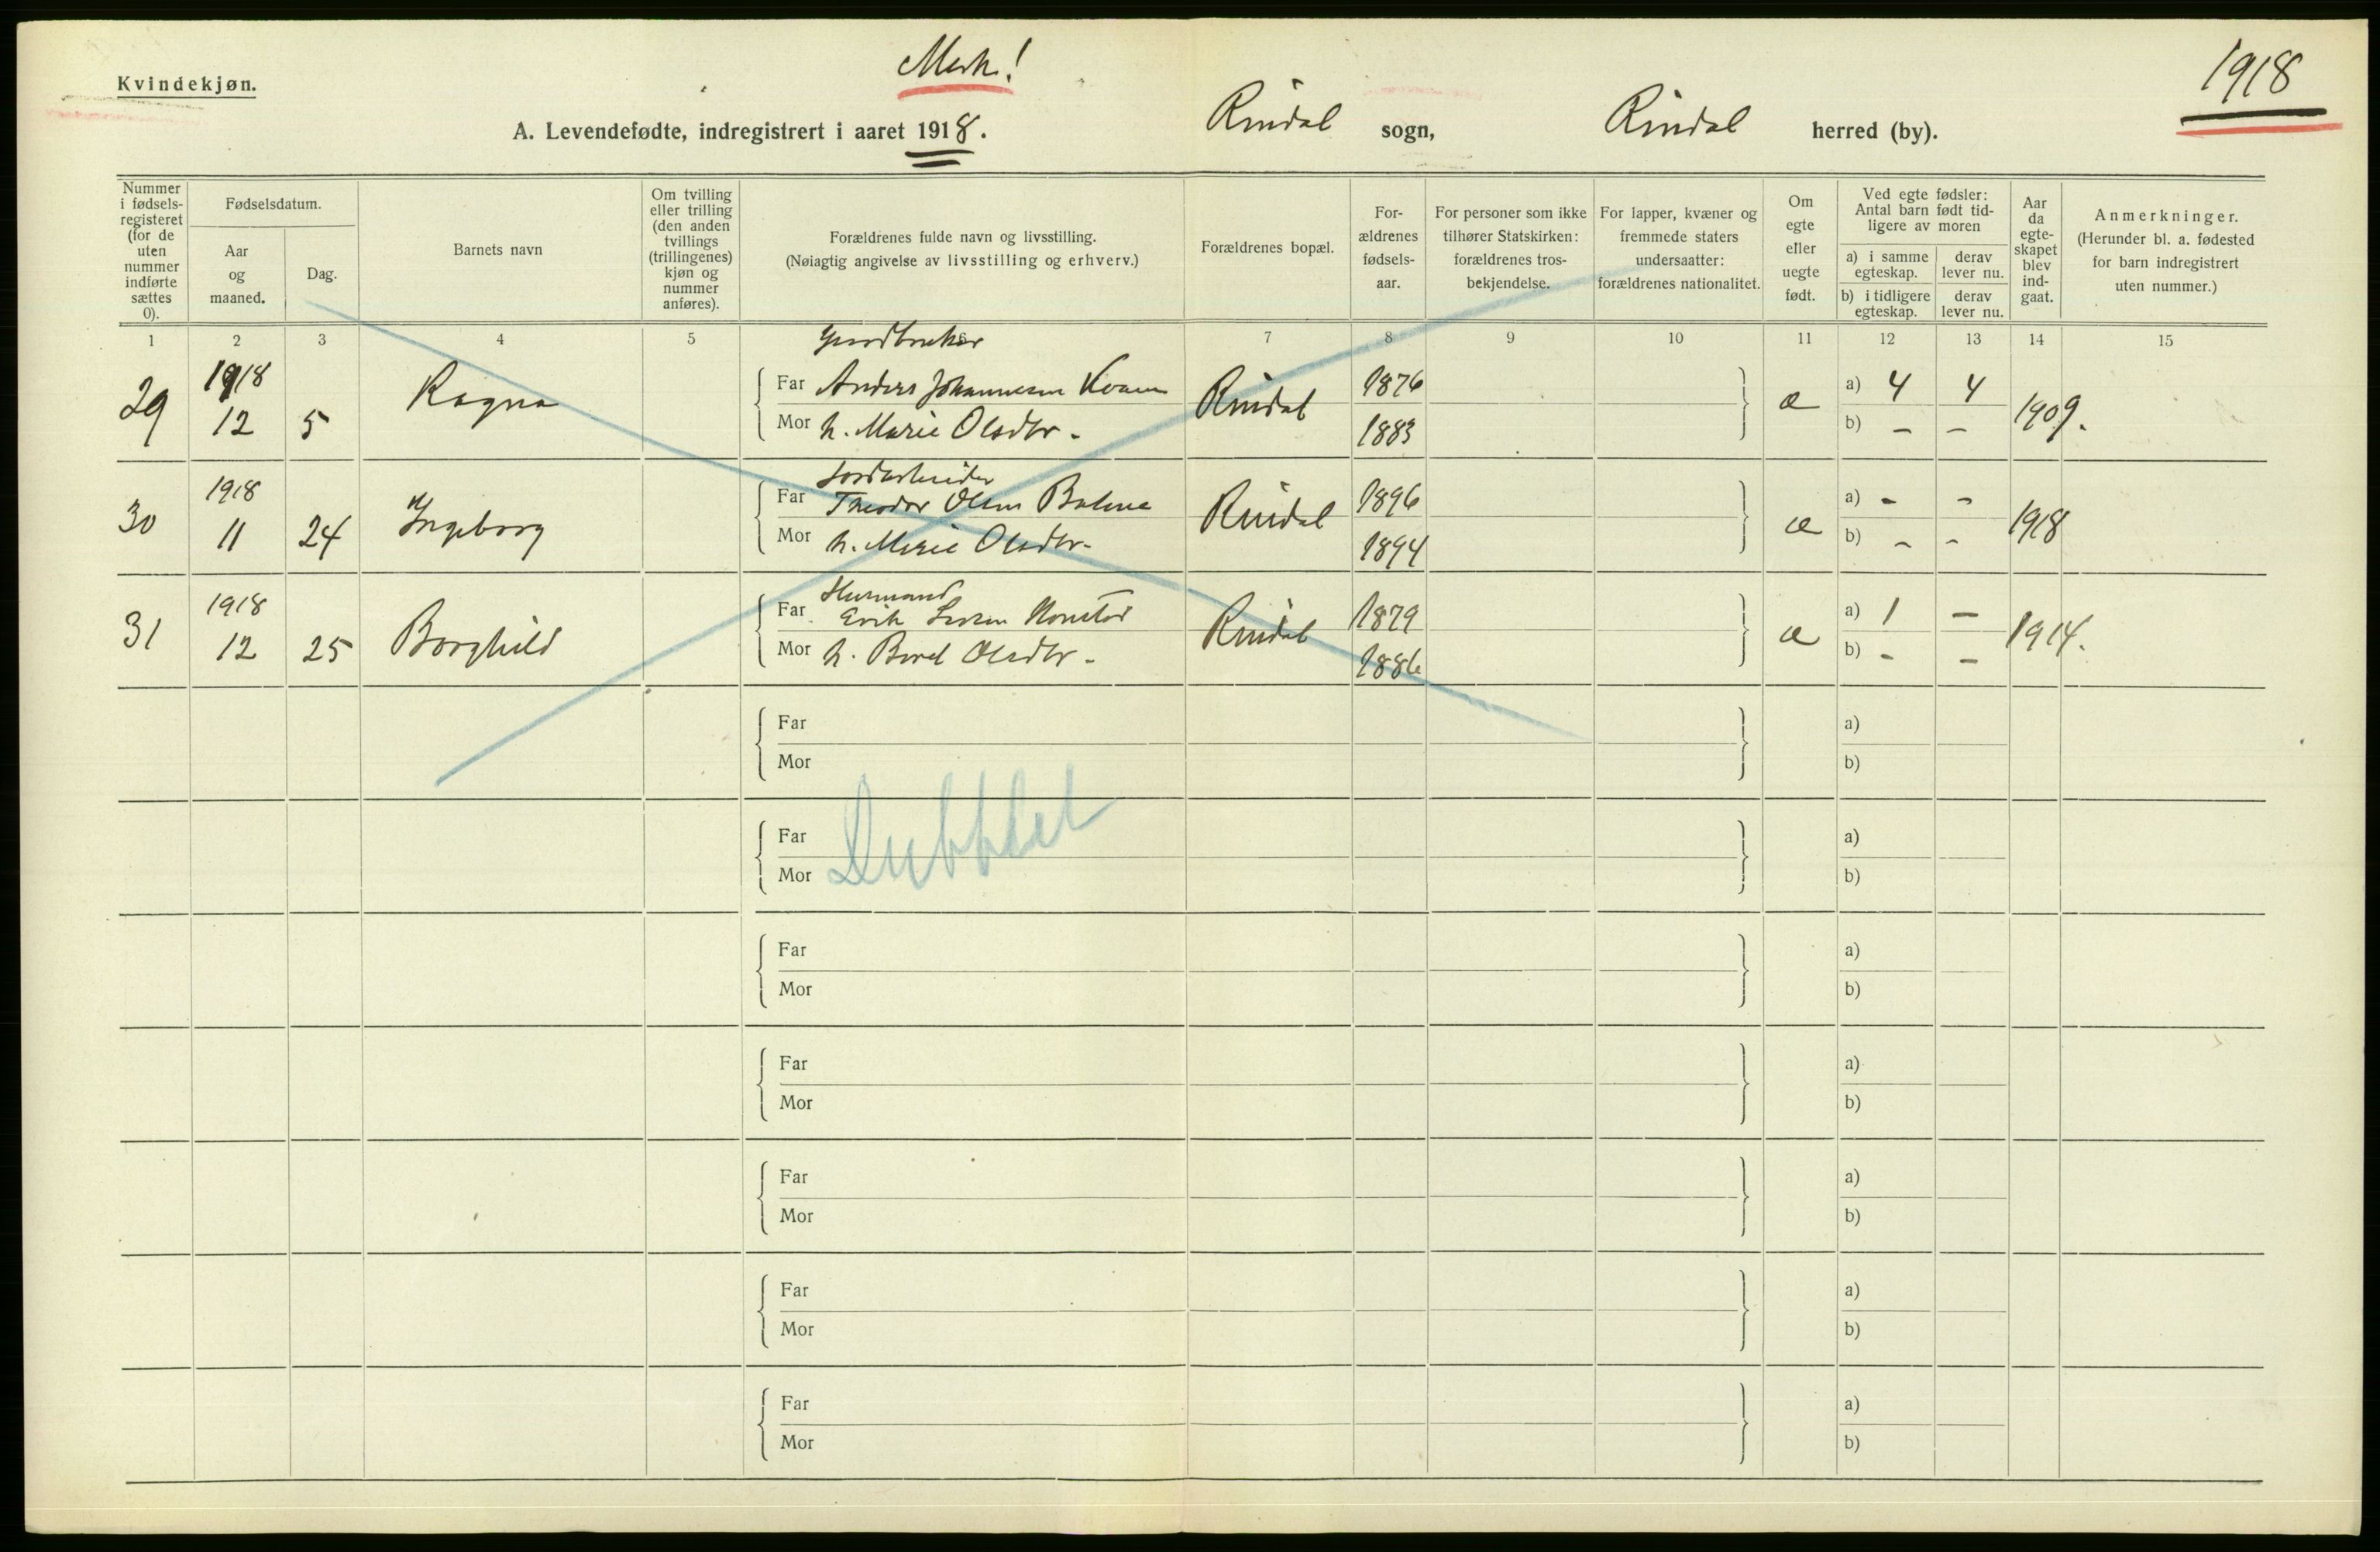 Kvindekjøn.
Merk!
1918
A. Levendefødte, indregistrert i aaret 1918.
Rindal sogn, Rindal herred (by).
Nummer i fødsels-registeret (for de uten nummer indførte sættes 0).
Fødselsdatum.
Aar og maaned.
Dag.
Barnets navn
Om tvilling eller trilling (den anden tvillings (trillingenes) kjøn og nummer anføres).
Forældrenes fulde navn og livsstilling.
(Nøiagtig angivelse av livsstilling og erhverv.)
Forældrenes bopæl.
For-ældrenes fødsels-aar.
For personer som ikke tilhører Statskirken: forældrenes tros-bekjendelse.
For lapper, kvæner og fremmede staters undersaatter: forældrenes nationalitet.
Om egte eller uegte født.
Ved egte fødsler: Antal barn født tid-ligere av moren
a) i samme egteskap.
derav lever nu.
b) i tidligere egteskap.
derav lever nu.
Aar da egte-skapet blev ind-gaat.
Anmerkninger.
(Herunder bl. a. fødested for barn indregistrert uten nummer.)
1 2 3 4 5 6 7 8 9 10 11 12 13 14 15
Gardbruker
29 1918 12 5 Ragna Far Anders Johannesen Kvam Rindal 1876 æ a) 4 4 1909.
Mor h. Marie Olsdtr. 1883 b) - -
Jordarbeider
30 1918 11 24 Ingeborg Far Theodor Olsen Rindal 1896 æ a) - - 1918
Mor h. Marie Olsdtr. 1894 b) - -
Husmand
31 1918 12 25 Borghild Far Erik Rindal 1879 æ a) 1 - 1914.
Mor h. Beret Olsdtr. 1886 b) - -
Far a)
Mor b)
Dubblet
Far a)
Mor b)
Far a)
Mor b)
Far a)
Mor b)
Far a)
Mor b)
Far a)
Mor b)
Far a)
Mor b)